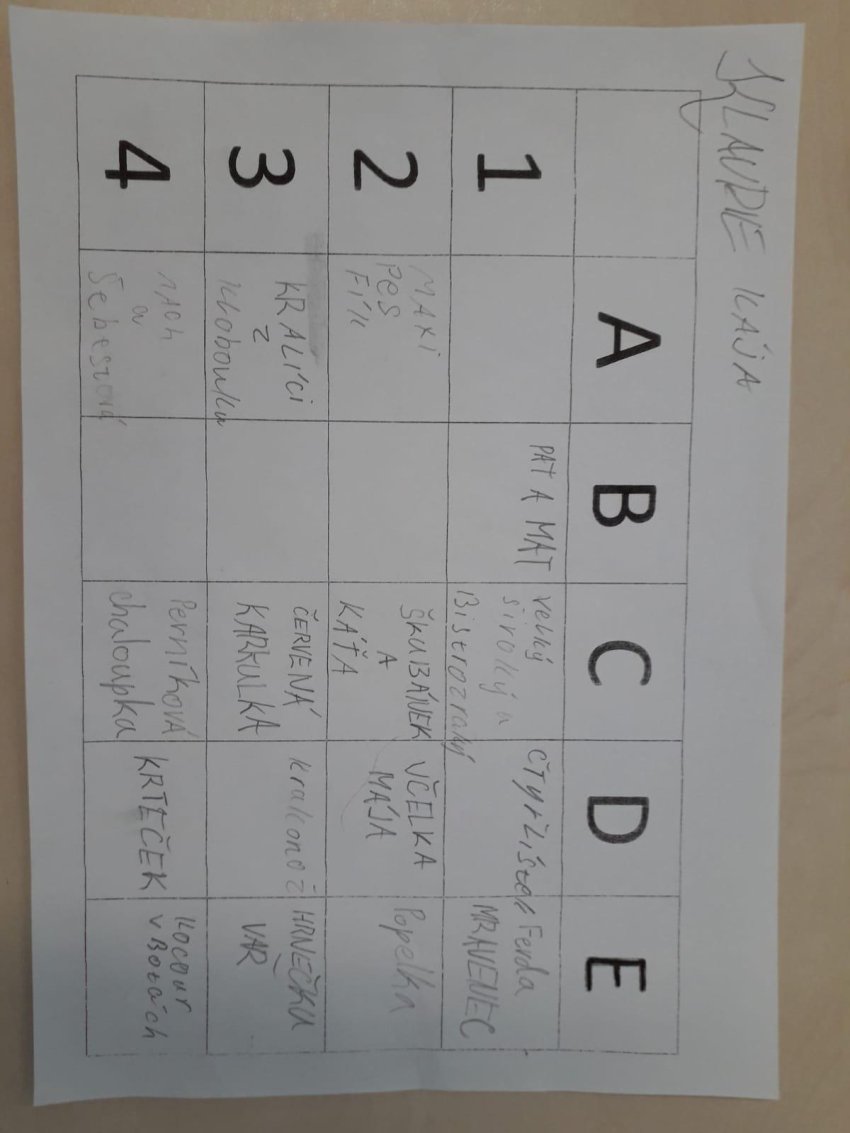 KLAUDIE KÁJA
A B C D E
1
PAT A MAT
Velký
široký a
Bistrozraký
ČTYŘLÍstek
Ferda
MRAVENEC
2
MAXI
PES
FÍK
ŠKUBÁNEK
A
KÁŤA
VČELKA
MÁJA
Popelka
3
KRALÍCI
Z
klobouku
ČERVENÁ
KARKULKA
krakonož
HRNEČKU
VAŘ
4
MACH
a
Šebestová
Perníková
chaloupka
KRTEČEK
Kocour
v Botách